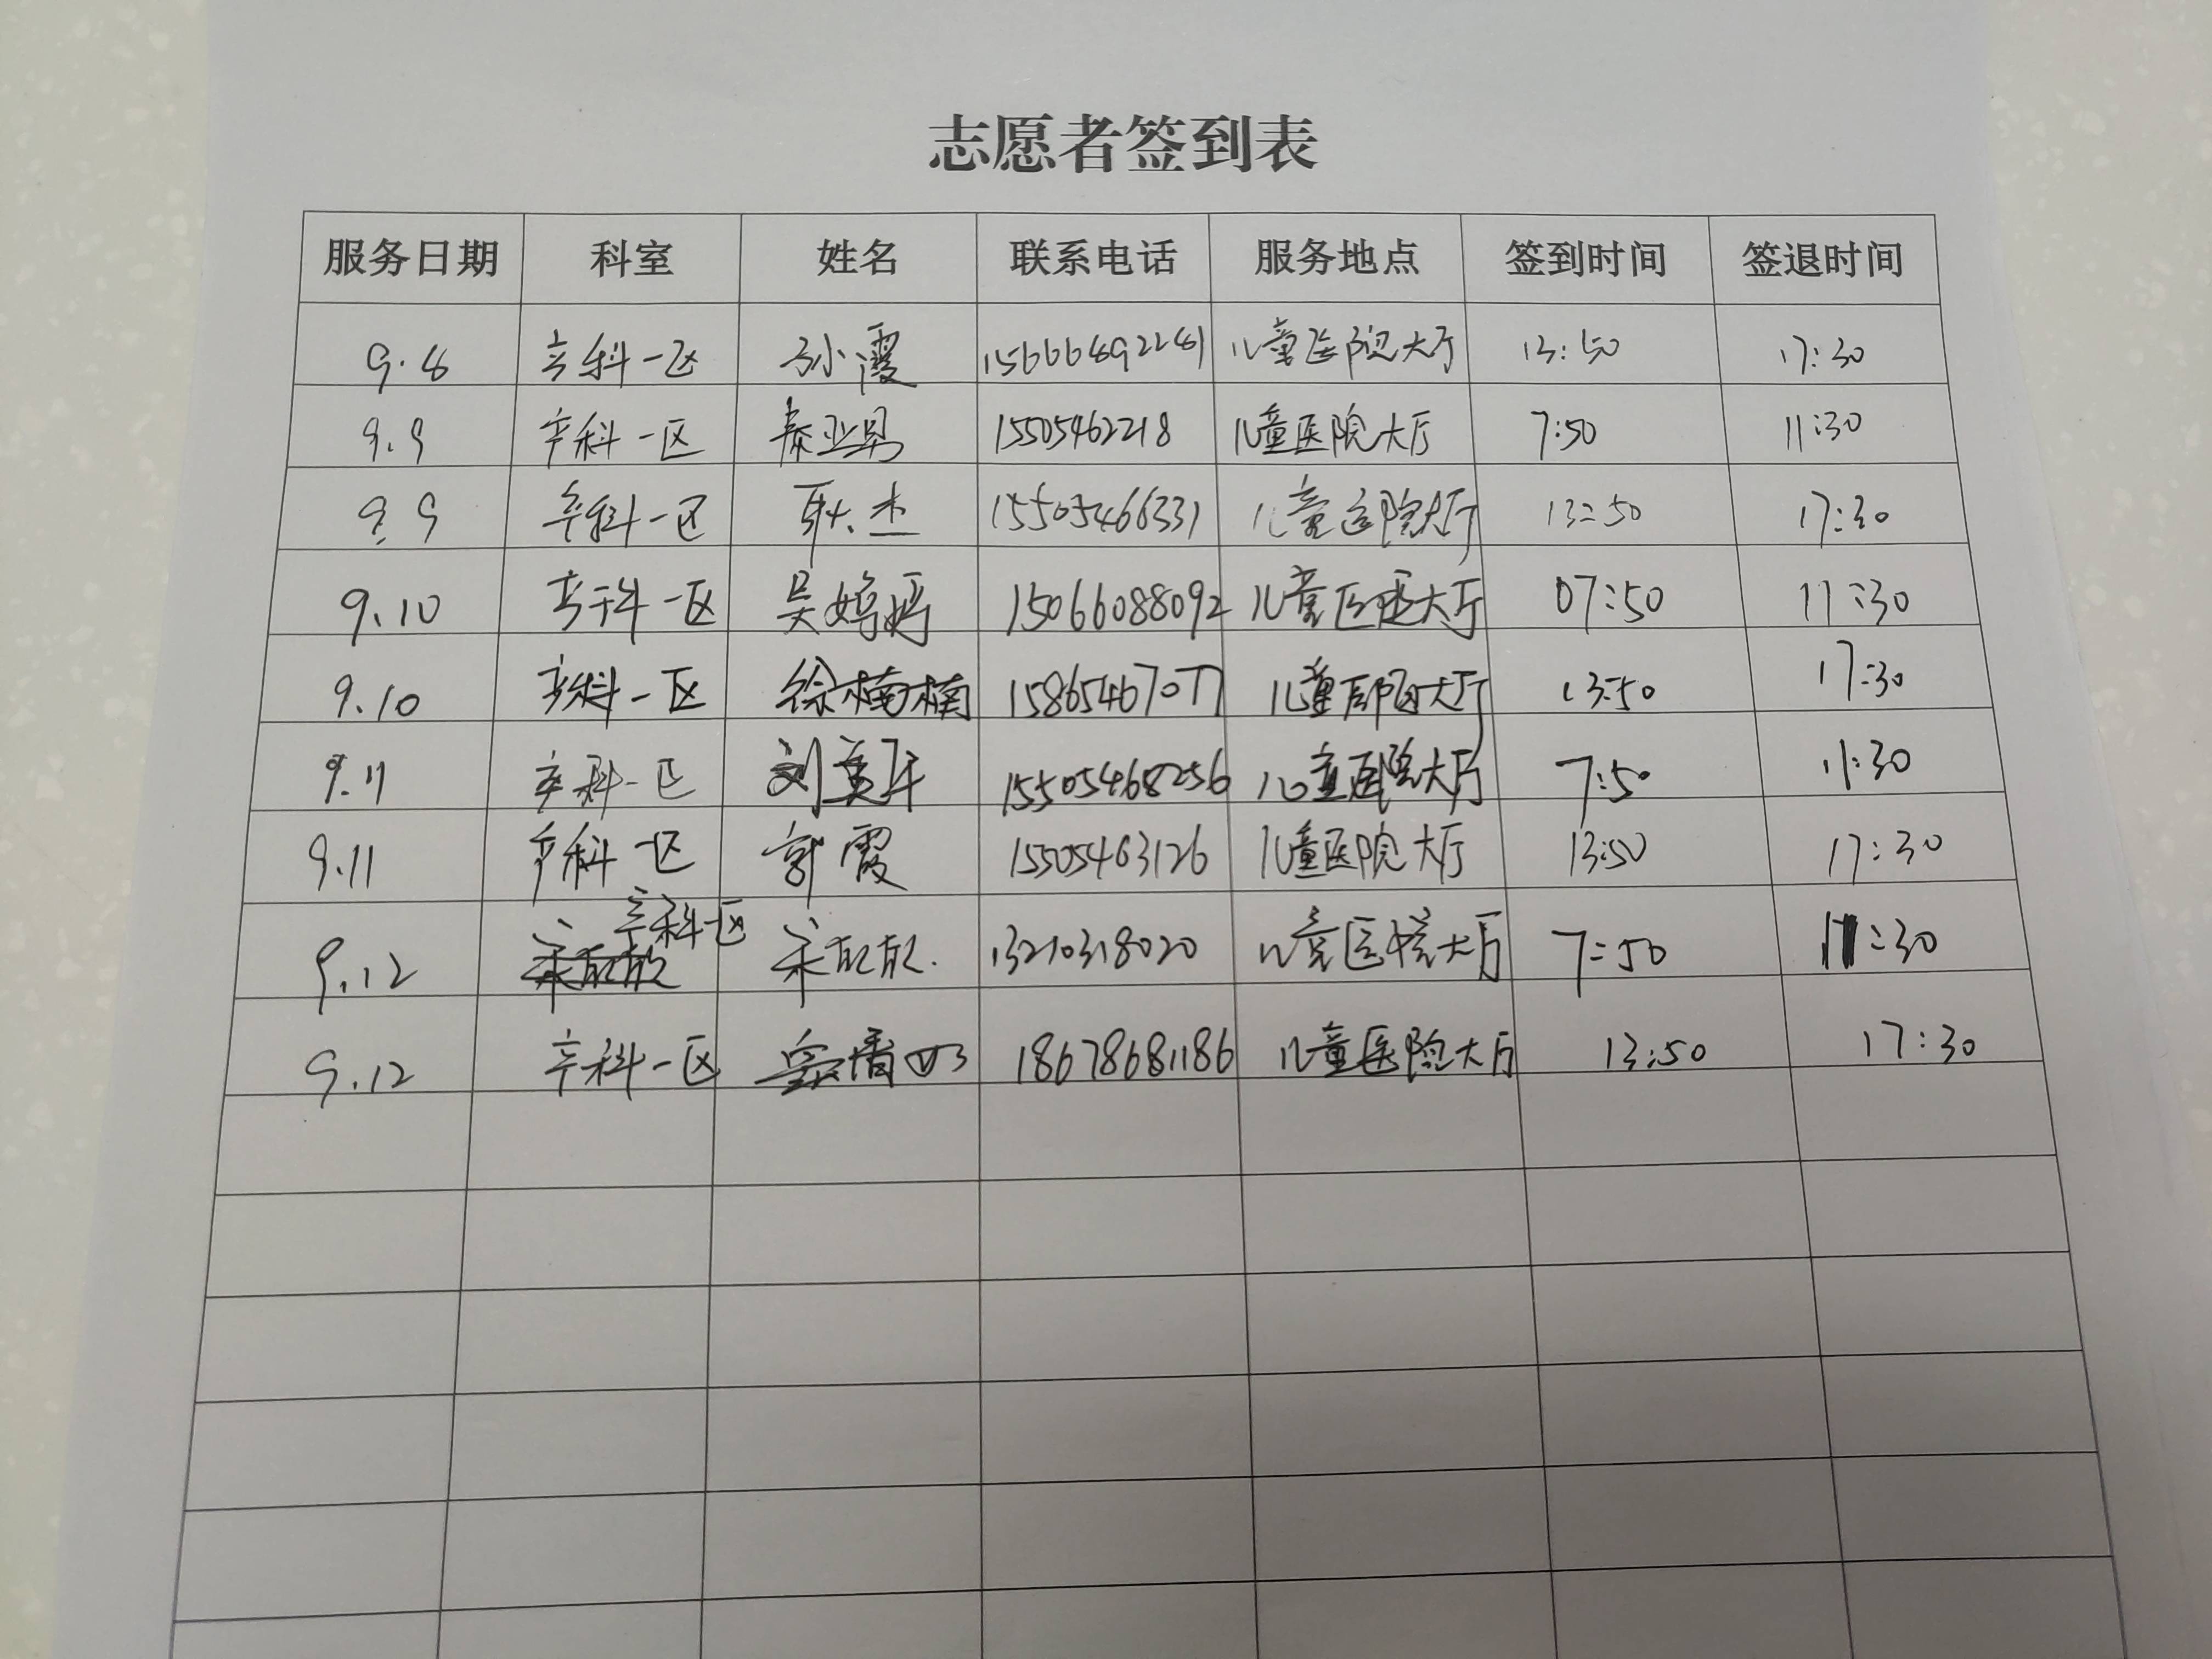 志愿者签到表
服务日期 科室 姓名 联系电话 服务地点 签到时间 签退时间
9.8 产科一区 孙霞 15666892281 儿童医院大厅 13:50 17:30
9.9 产科一区 秦亚男 15505462218 儿童医院大厅 7:50 11:30
9.9 产科一区 耿杰 15505466331 儿童医院大厅 13:50 17:30
9.10 产科一区 吴婷婷 15066088092 儿童医院大厅 07:50 11:30
9.10 产科一区 徐楠楠 15865467077 儿童医院大厅 13:50 17:30
9.11 产科一区 刘 15505468256 儿童医院大厅 7:50 11:30
9.11 产科一区 郭霞 15505463126 儿童医院大厅 13:50 17:30
9.12 产科一区 13210318020 儿童医院大厅 7:50 11:30
9.12 产科一区 18678681186 儿童医院大厅 13:50 17:30